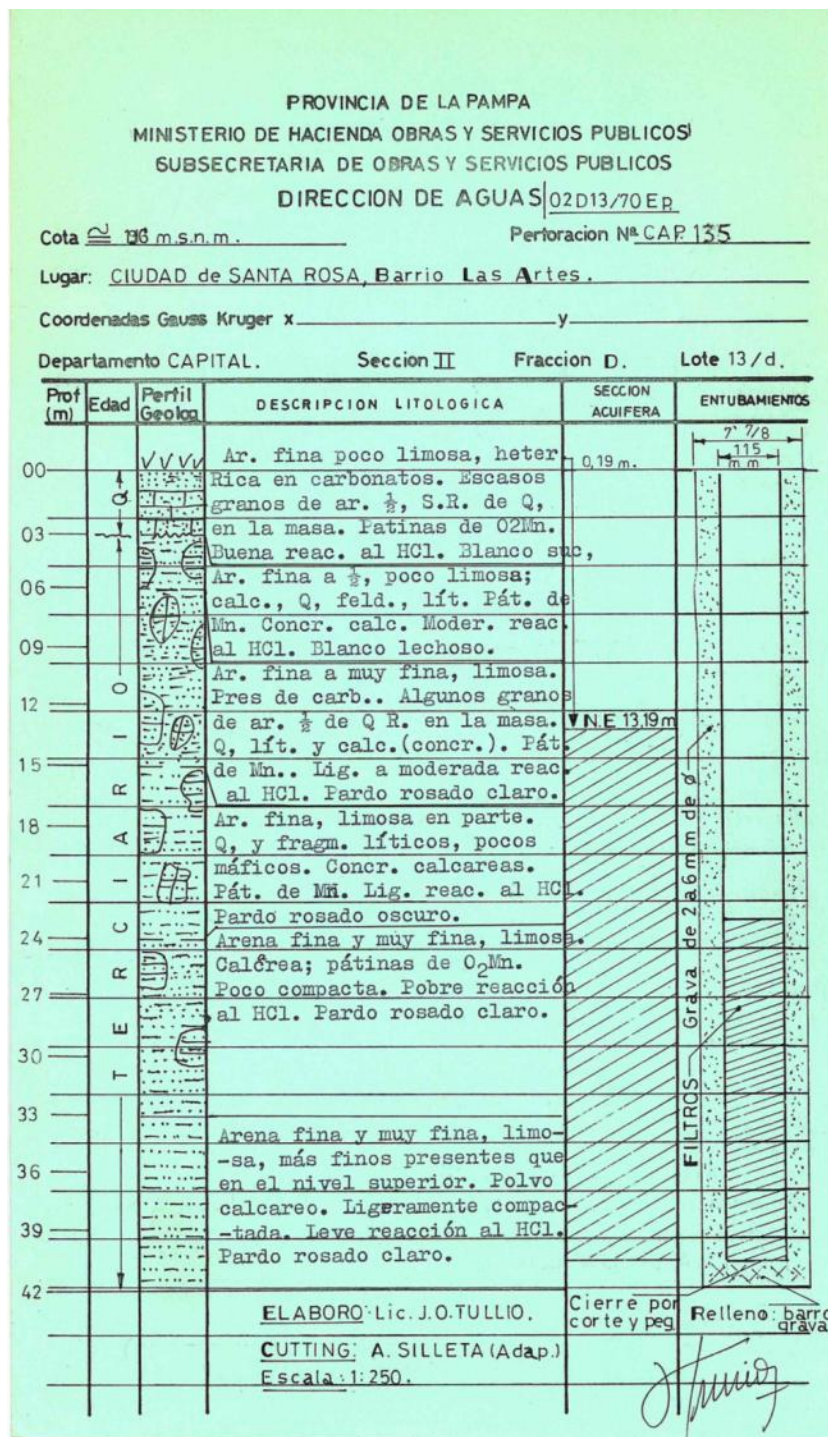 PROVINCIA DE LA PAMPA
MINISTERIO DE HACIENDA OBRAS Y SERVICIOS PUBLICOS
SUBSECRETARIA DE OBRAS Y SERVICIOS PUBLICOS
DIRECCION DE AGUAS 02D13/70Ep
Cota ≅ m.s.n.m. Perforacion Nª CAP. 135
Lugar: CIUDAD de SANTA ROSA, Barrio Las Artes.
Coordenadas Gauss Kruger x y
Departamento CAPITAL. Seccion II Fraccion D. Lote 13/d.
Prof (m)
Edad
Perfil Geolog
DESCRIPCION LITOLOGICA
SECCION ACUIFERA
ENTUBAMIENTOS
7" 7/8
115
mm
00
03
06
09
12
15
18
21
24
27
30
33
36
39
42
Q
TERCIARIO
Ar. fina poco limosa, heter
Rica en carbonatos. Escasos
granos de ar. ½, S.R. de Q,
en la masa. Patinas de O2Mn.
Buena reac. al HCl. Blanco suc,
Ar. fina a ½, poco limosa;
calc., Q, feld., lít. Pát. de
Mn. Concr. calc. Moder. reac.
al HCl. Blanco lechoso.
Ar. fina a muy fina, limosa.
Pres de carb.. Algunos granos
de ar. ½ de Q R. en la masa.
Q, lít. y calc.(concr.). Pát.
de Mn.. Lig. a moderada reac.
al HCl. Pardo rosado claro.
Ar. fina, limosa en parte.
Q, y fragm. líticos, pocos
máficos. Concr. calcareas.
Pát. de Mn. Lig. reac. al HCl.
Pardo rosado oscuro.
Arena fina y muy fina, limosa.
Calcrea; pátinas de O2Mn.
Poco compacta. Pobre reacción
al HCl. Pardo rosado claro.
Arena fina y muy fina, limo-
-sa, más finos presentes que
en el nivel superior. Polvo
calcareo. Ligeramente compac-
-tada. Leve reacción al HCl.
Pardo rosado claro.
0,19 m.
N.E 13,19 m
Grava de 2a6mm de ø
FILTROS
Cierre por
corte y peg
Relleno: barro
grava
ELABORO: Lic. J.O.TULLIO.
CUTTING: A. SILLETA (Adap.)
Escala: 1:250.